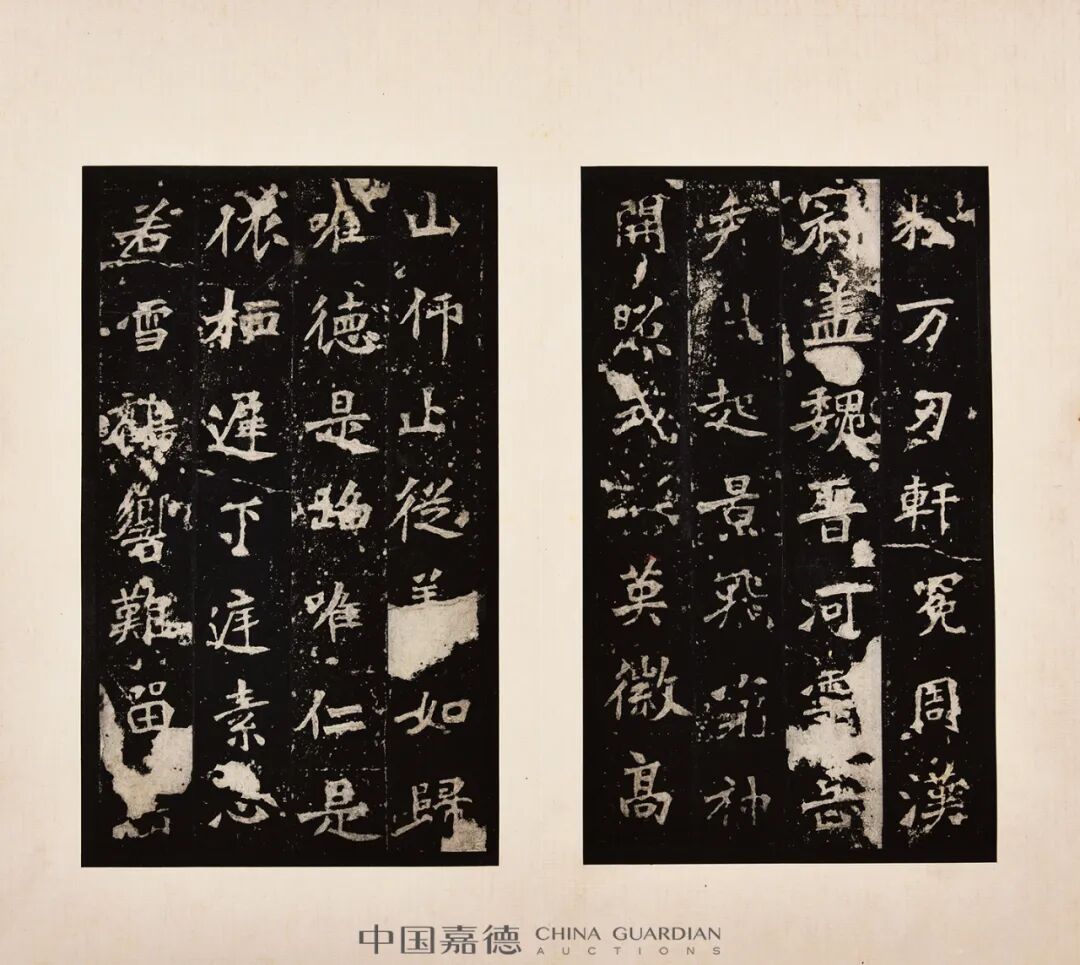 松万刃軒冕周漢
冠盖魏晉河靈岳
秀月起景飛神
開照式誕英徽高
山仰止從善如歸
唯德是蹈唯仁是
依栖遲下庭素心
若雪鶴響難留
中国嘉德 CHINA GUARDIAN
AUCTIONS